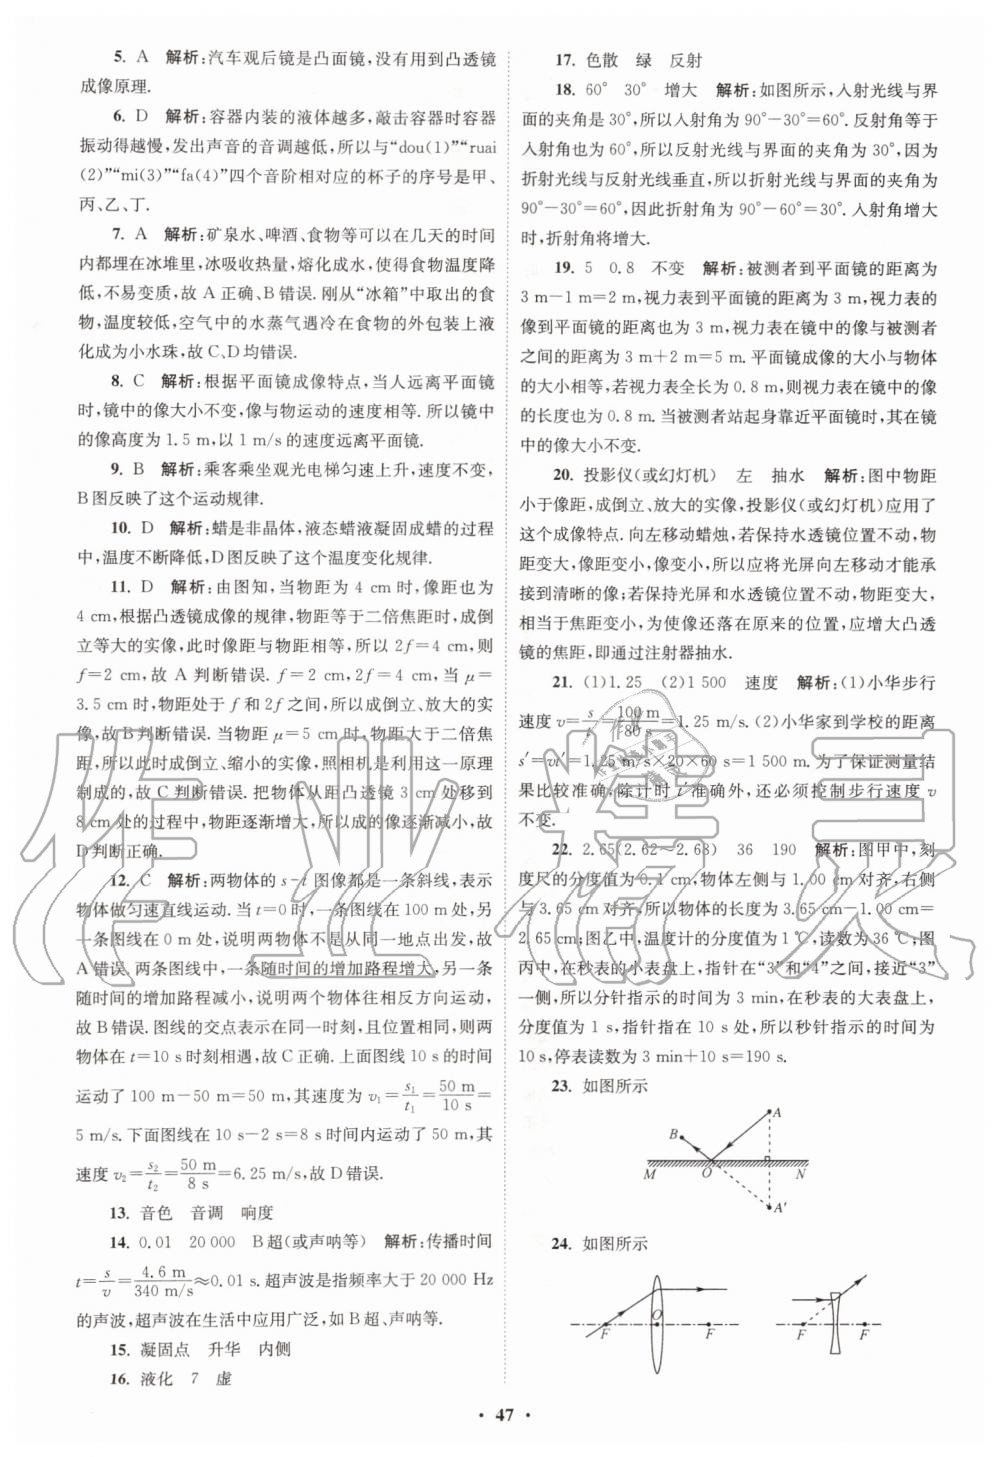 5. A 解析:汽车观后镜是凸面镜,没有用到凸透镜
成像原理.
6. D 解析:容器内装的液体越多,敲击容器时容器
振动得越慢,发出声音的音调越低,所以与“dou(1)”“ruai
(2)”“mi(3)”“fa(4)”四个音阶相对应的杯子的序号是甲、
丙、乙、丁.
7. A 解析:矿泉水、啤酒、食物等可以在几天的时间
内都埋在冰堆里,冰吸收热量,熔化成水,使得食物温度降
低,不易变质,故 A 正确、B 错误. 刚从“冰箱”中取出的食
物,温度较低,空气中的水蒸气遇冷在食物的外包装上液
化成为小水珠,故 C、D 均错误.
8. C 解析:根据平面镜成像特点,当人远离平面镜
时,镜中的像大小不变,像与物运动的速度相等. 所以镜中
的像高度为 1.5 m,以 1 m/s 的速度远离平面镜.
9. B 解析:乘客乘坐观光电梯匀速上升,速度不变,
B 图反映了这个运动规律.
10. D 解析:蜡是非晶体,液态蜡液凝固成蜡的过程
中,温度不断降低,D 图反映了这个温度变化规律.
11. D 解析:由图知,当物距为 4 cm 时,像距也为
4 cm,根据凸透镜成像的规律,物距等于二倍焦距时,成倒
立等大的实像,此时像距与物距相等,所以 2f=4 cm,则
f=2 cm,故 A 判断错误. 2f=4 cm,当 μ=
3.5 cm 时,物距处于 f 和 2f 之间,所以成倒立、放大的实
像,故 B 判断错误. 当物距 μ=5 cm 时,物距大于二倍焦
距,所以此时成倒立、缩小的实像,照相机是利用这一原理
制成的,故 C 判断错误. 把物体从距凸透镜 3 cm 处移到
8 cm 处的过程中,物距逐渐增大,所以成的像逐渐减小,故
D 判断正确.
12. C 解析:两物体的 s-t 图像都是一条斜线,表示
物体做匀速直线运动. 当 t=0 时,一条图线在 100 m 处,另
一条图线在 0 m 处,说明两物体不是从同一地点出发,故
A 错误. 两条图线中,一条随时间的增加路程增大,另一条
随时间的增加路程减小,说明两个物体往相反方向运动,
故 B 错误. 图线的交点表示在同一时刻,且位置相同,则两
物体在 t=10 s 时刻相遇,故 C 正确. 上面图线 10 s 的时间
运动了 100 m-50 m=50 m,其速度为 v₁=s₁/t₁=50 m/10 s=
5 m/s. 下面图线在 10 s-2 s=8 s 时间内运动了 50 m,其
速度 v₂=s₂/t₂=50 m/8 s=6.25 m/s,故 D 错误.
13. 音色 音调 响度
14. 0.01 20 000 B 超(或声呐等) 解析:传播时间
t=s/v=4.6 m/340 m/s≈0.01 s. 超声波是指频率大于 20 000 Hz
的声波,超声波在生活中应用广泛,如 B 超、声呐等.
15. 凝固点 升华 内侧
16. 液化 7 虚
17. 色散 绿 反射
18. 60° 30° 增大 解析:如图所示,入射光线与界
面的夹角是 30°,所以入射角为 90°-30°=60°. 反射角等于
入射角也为 60°,所以反射光线与界面的夹角为 30°,因为
折射光线与反射光线垂直,所以折射光线与界面的夹角为
90°-30°=60°,因此折射角为 90°-60°=30°. 入射角增大
时,折射角将增大.
19. 5 0.8 不变 解析:被测者到平面镜的距离为
3 m-1 m=2 m,视力表到平面镜的距离为 3 m,视力表的
像到平面镜的距离也为 3 m,视力表在镜中的像与被测者
之间的距离为 3 m+2 m=5 m. 平面镜成像的大小与物体
的大小相等,若视力表全长为 0.8 m,则视力表在镜中的像
的长度也为 0.8 m. 当被测者站起身靠近平面镜时,其在镜
中的像大小不变.
20. 投影仪(或幻灯机) 左 抽水 解析:图中物距
小于像距,成倒立、放大的实像,投影仪(或幻灯机)应用了
这个成像特点. 向左移动蜡烛,若保持水透镜位置不动,物
距变大,像距变小,像变小,所以应将光屏向左移动才能承
接到清晰的像;若保持光屏和水透镜位置不动,物距变大,
相当于焦距变小,为使像还落在原来的位置,应增大凸透
镜的焦距,即通过注射器抽水.
21. (1)1.25 (2)1 500 速度 解析:(1)小华步行
速度 v=s/t=100 m/80 s=1.25 m/s. (2)小华家到学校的距离
s′=vt′=1.25 m/s×20×60 s=1 500 m. 为了保证测量结
果比较准确,除计时 t 准确外,还必须控制步行速度 v
不变.
22. 2.65(2.62~2.68) 36 190 解析:图甲中,刻
度尺的分度值为 0.1 cm,物体左侧与 1.00 cm 对齐,右侧
与 3.65 cm 对齐,所以物体的长度为 3.65 cm-1.00 cm=
2.65 cm;图乙中,温度计的分度值为 1 ℃,读数为 36 ℃;图
丙中,在秒表的小表盘上,指针在“3”和“4”之间,接近“3”
一侧,所以分针指示的时间为 3 min,在秒表的大表盘上,
分度值为 1 s,指针指在 10 s 处,所以秒针指示的时间为
10 s,停表读数为 3 min+10 s=190 s.
23. 如图所示
A
B
M O N
A′
24. 如图所示
O
F F F F
· 47 ·
作业精灵